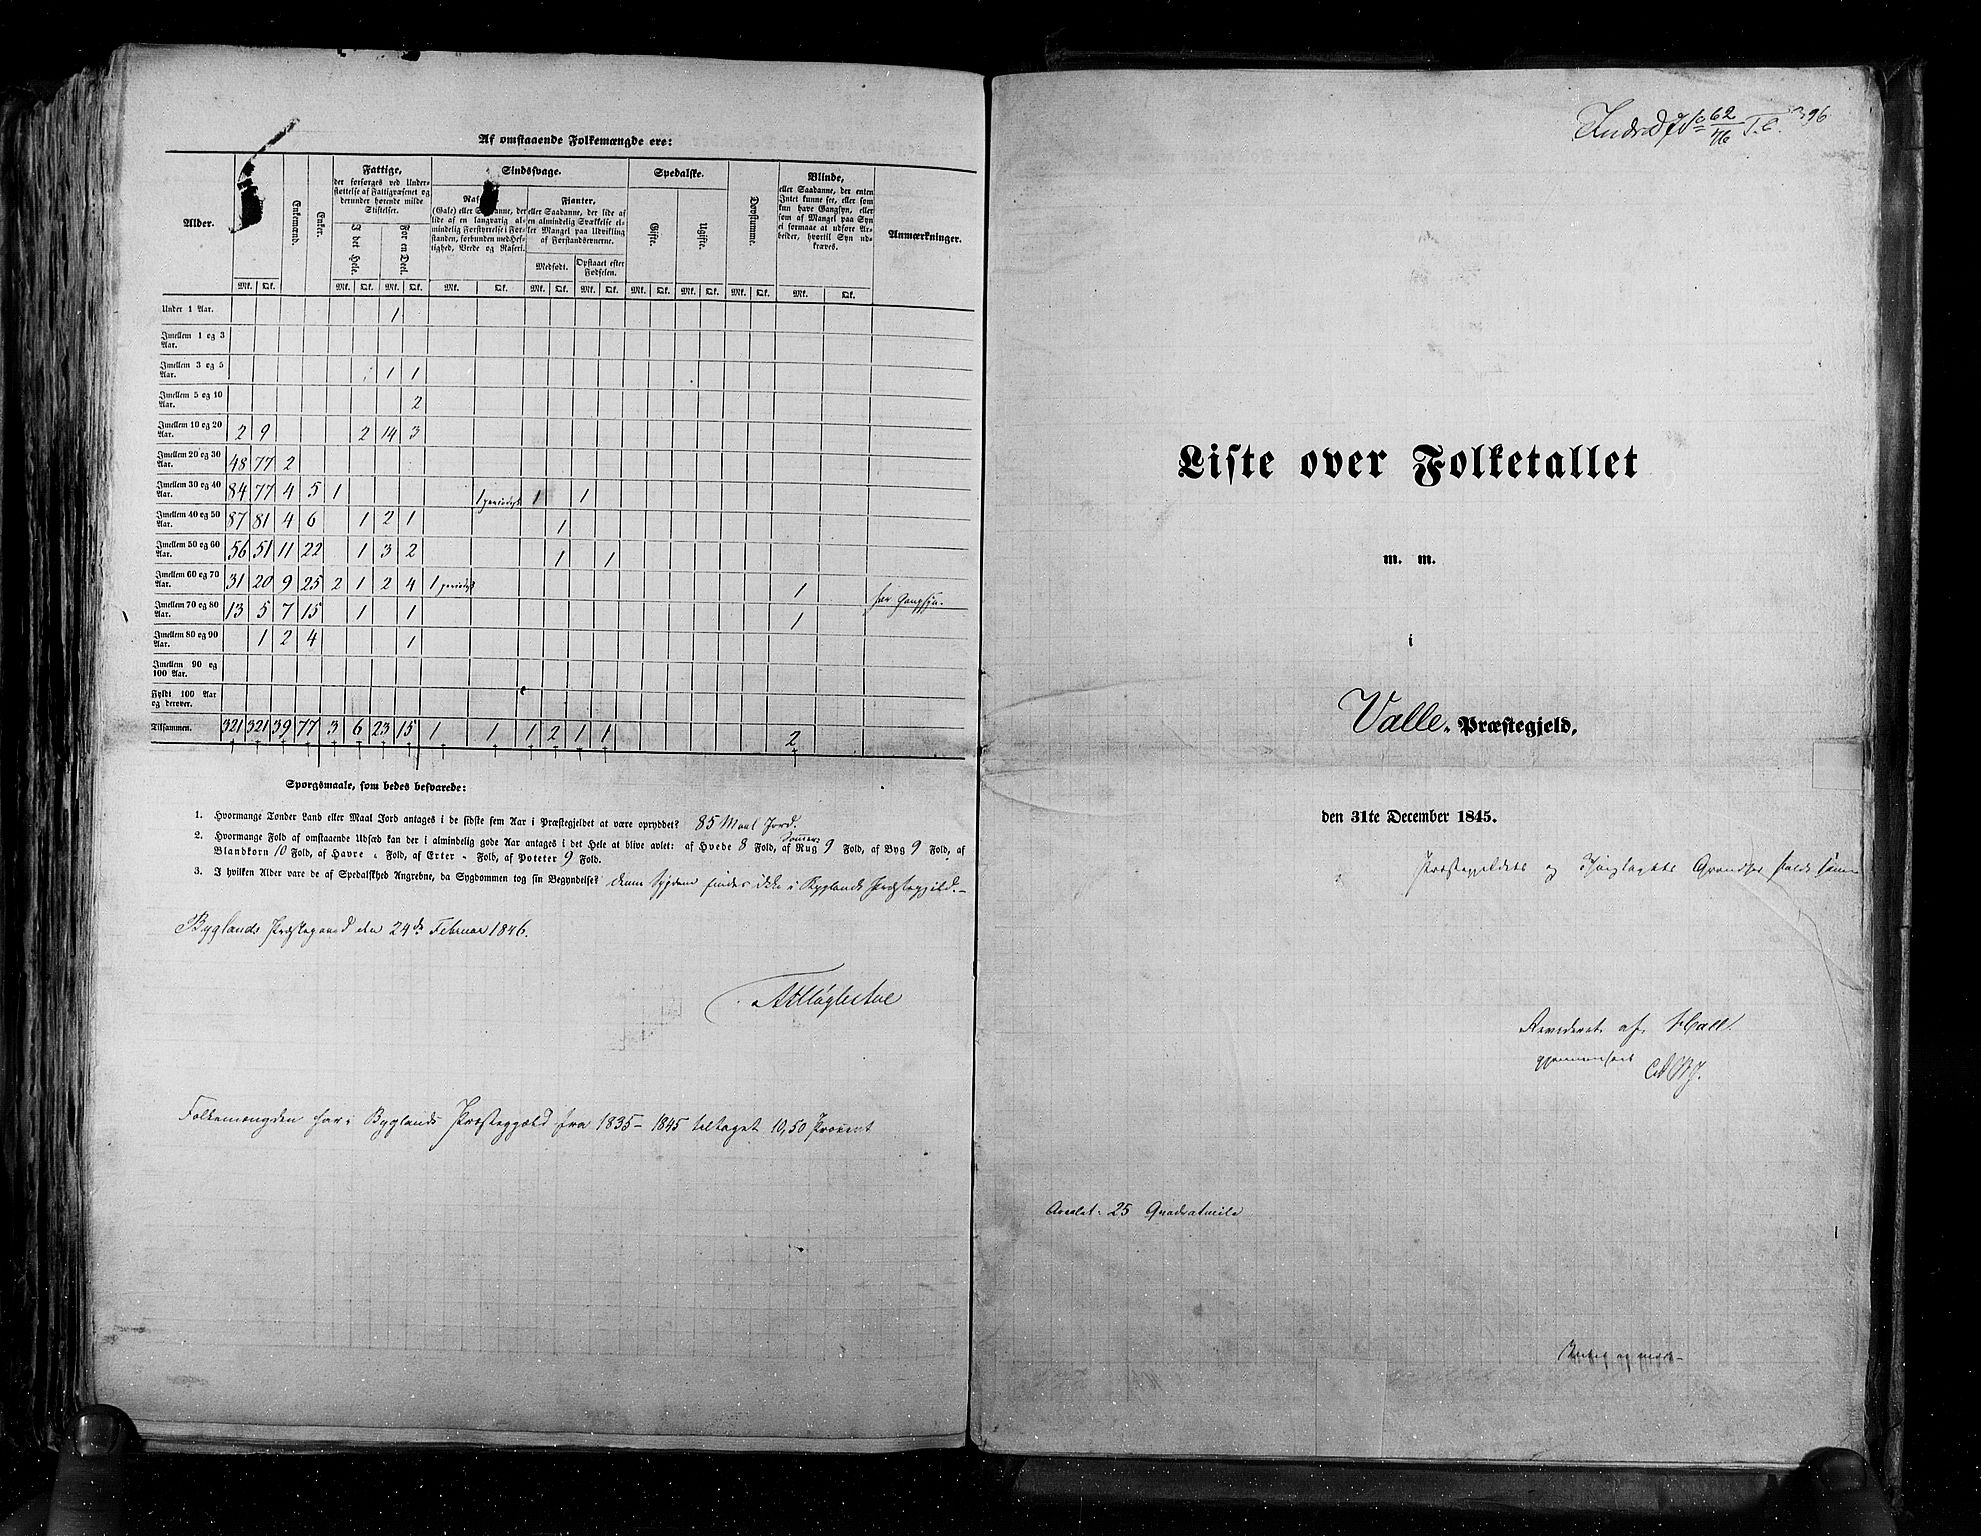 Af omstaaende Folkemængde ere:
Alder. Enkemænd. Enker. Fattige, der forsørges ved Understøttelse af Fattigvæsenet og derunder hørende milde Stiftelser. I det Hele. For en Deel. Sindssvage. (Gale) eller Saadanne, der lide af en langvarig almindelig Forstyrrelse i Forstanden, forbunden med Heftighed, Vrede og Raseri. Fianter, eller Saadanne, der lide af en almindelig Svækkelse eller Mangel paa Udvikling af Forstandsevnerne. Medfødt. Opstaaet efter Fødselen. Spedalske. Gifte. Ugifte. Døvstumme. Blinde, eller Saadanne, der enten Intet kunne see, eller som kun have Gangsyn, eller som af Mangel paa Syn ei formaae at udføre Arbeider, hvortil Syn udkræves. Anmærkninger.
Mk. Qk. Mk. Qk. Mk. Qk. Mk. Qk. Mk. Qk. Mk. Qk. Mk. Qk. Mk. Qk. Mk. Qk. Mk. Qk.
Under 1 Aar. 1
Imellem 1 og 3 Aar.
Imellem 3 og 5 Aar. 1 1
Imellem 5 og 10 Aar. 2
Imellem 10 og 20 Aar. 2 9 2 14 3
Imellem 20 og 30 Aar. 48 77 2
Imellem 30 og 40 Aar. 84 77 4 5 1 1 periodisk 1 1
Imellem 40 og 50 Aar. 87 81 4 6 1 2 1 1
Imellem 50 og 60 Aar. 56 51 11 22 1 3 2 1 1
Imellem 60 og 70 Aar. 31 20 9 25 2 1 2 4 1 periodisk 1 har Gangsyn.
Imellem 70 og 80 Aar. 13 5 7 15 1 1 1
Imellem 80 og 90 Aar. 1 2 4 1
Imellem 90 og 100 Aar.
Fyldt 100 Aar og derover.
Tilsammen. 321 321 39 77 3 6 23 15 1 1 1 2 1 1 2
Spørgsmaale, som bedes besvarede:
1. Hvormange Tønder Land eller Maal Jord antages i de sidste fem Aar i Præstegjeldet at være opryddet? 85 Maal Jord.
2. Hvormange Fold af omstaaende Udsæd kan der i almindelig gode Aar antages i det Hele at blive avlet: af Hvede 8 Fold, af Sommer Rug 9 Fold, af Byg 9 Fold, af
Blandkorn 10 Fold, af Havre " Fold, af Erter " Fold, af Poteter 9 Fold.
3. I hvilken Alder vare de af Spedalskhed Angrebne, da Sygdommen tog sin Begyndelse? denne Sygdom findes ikke i Byglands Præstegjeld.
Byglands Præstegaard den 24de Februar 1846.
Folkemængden har i Byglands Præstegjeld fra 1835 – 1845 tiltaget 10,50 Procent
396
62
Liste over Folketallet
m. m.
i
Valle Præstegjeld,
den 31te December 1845.
Præstegjeldets og Thinglagets Grændser falde sammen
Revideret af Hall.
gjennemseet
Arealet: 25 Quadratmile